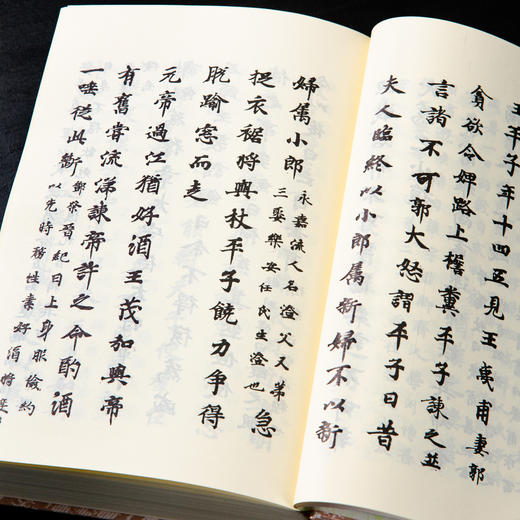 王平子年十四五見王夷甫妻郭
貪欲令婢路上儋糞平子諫之並
言諸不可郭大怒謂平子曰昔
夫人臨終以小郎属新婦不以新
婦属小郎
永嘉流人名澄父乂第
三娶樂安任氏生澄也
急
捉衣裾將與杖平子饒力爭得
脫踰窓而走
元帝過江猶好酒王茂和與帝
有舊嘗流涕諫帝許之命酌酒
一唾從此斷
鄧粲晉紀曰上身服儉約
以先時務性素好酒將